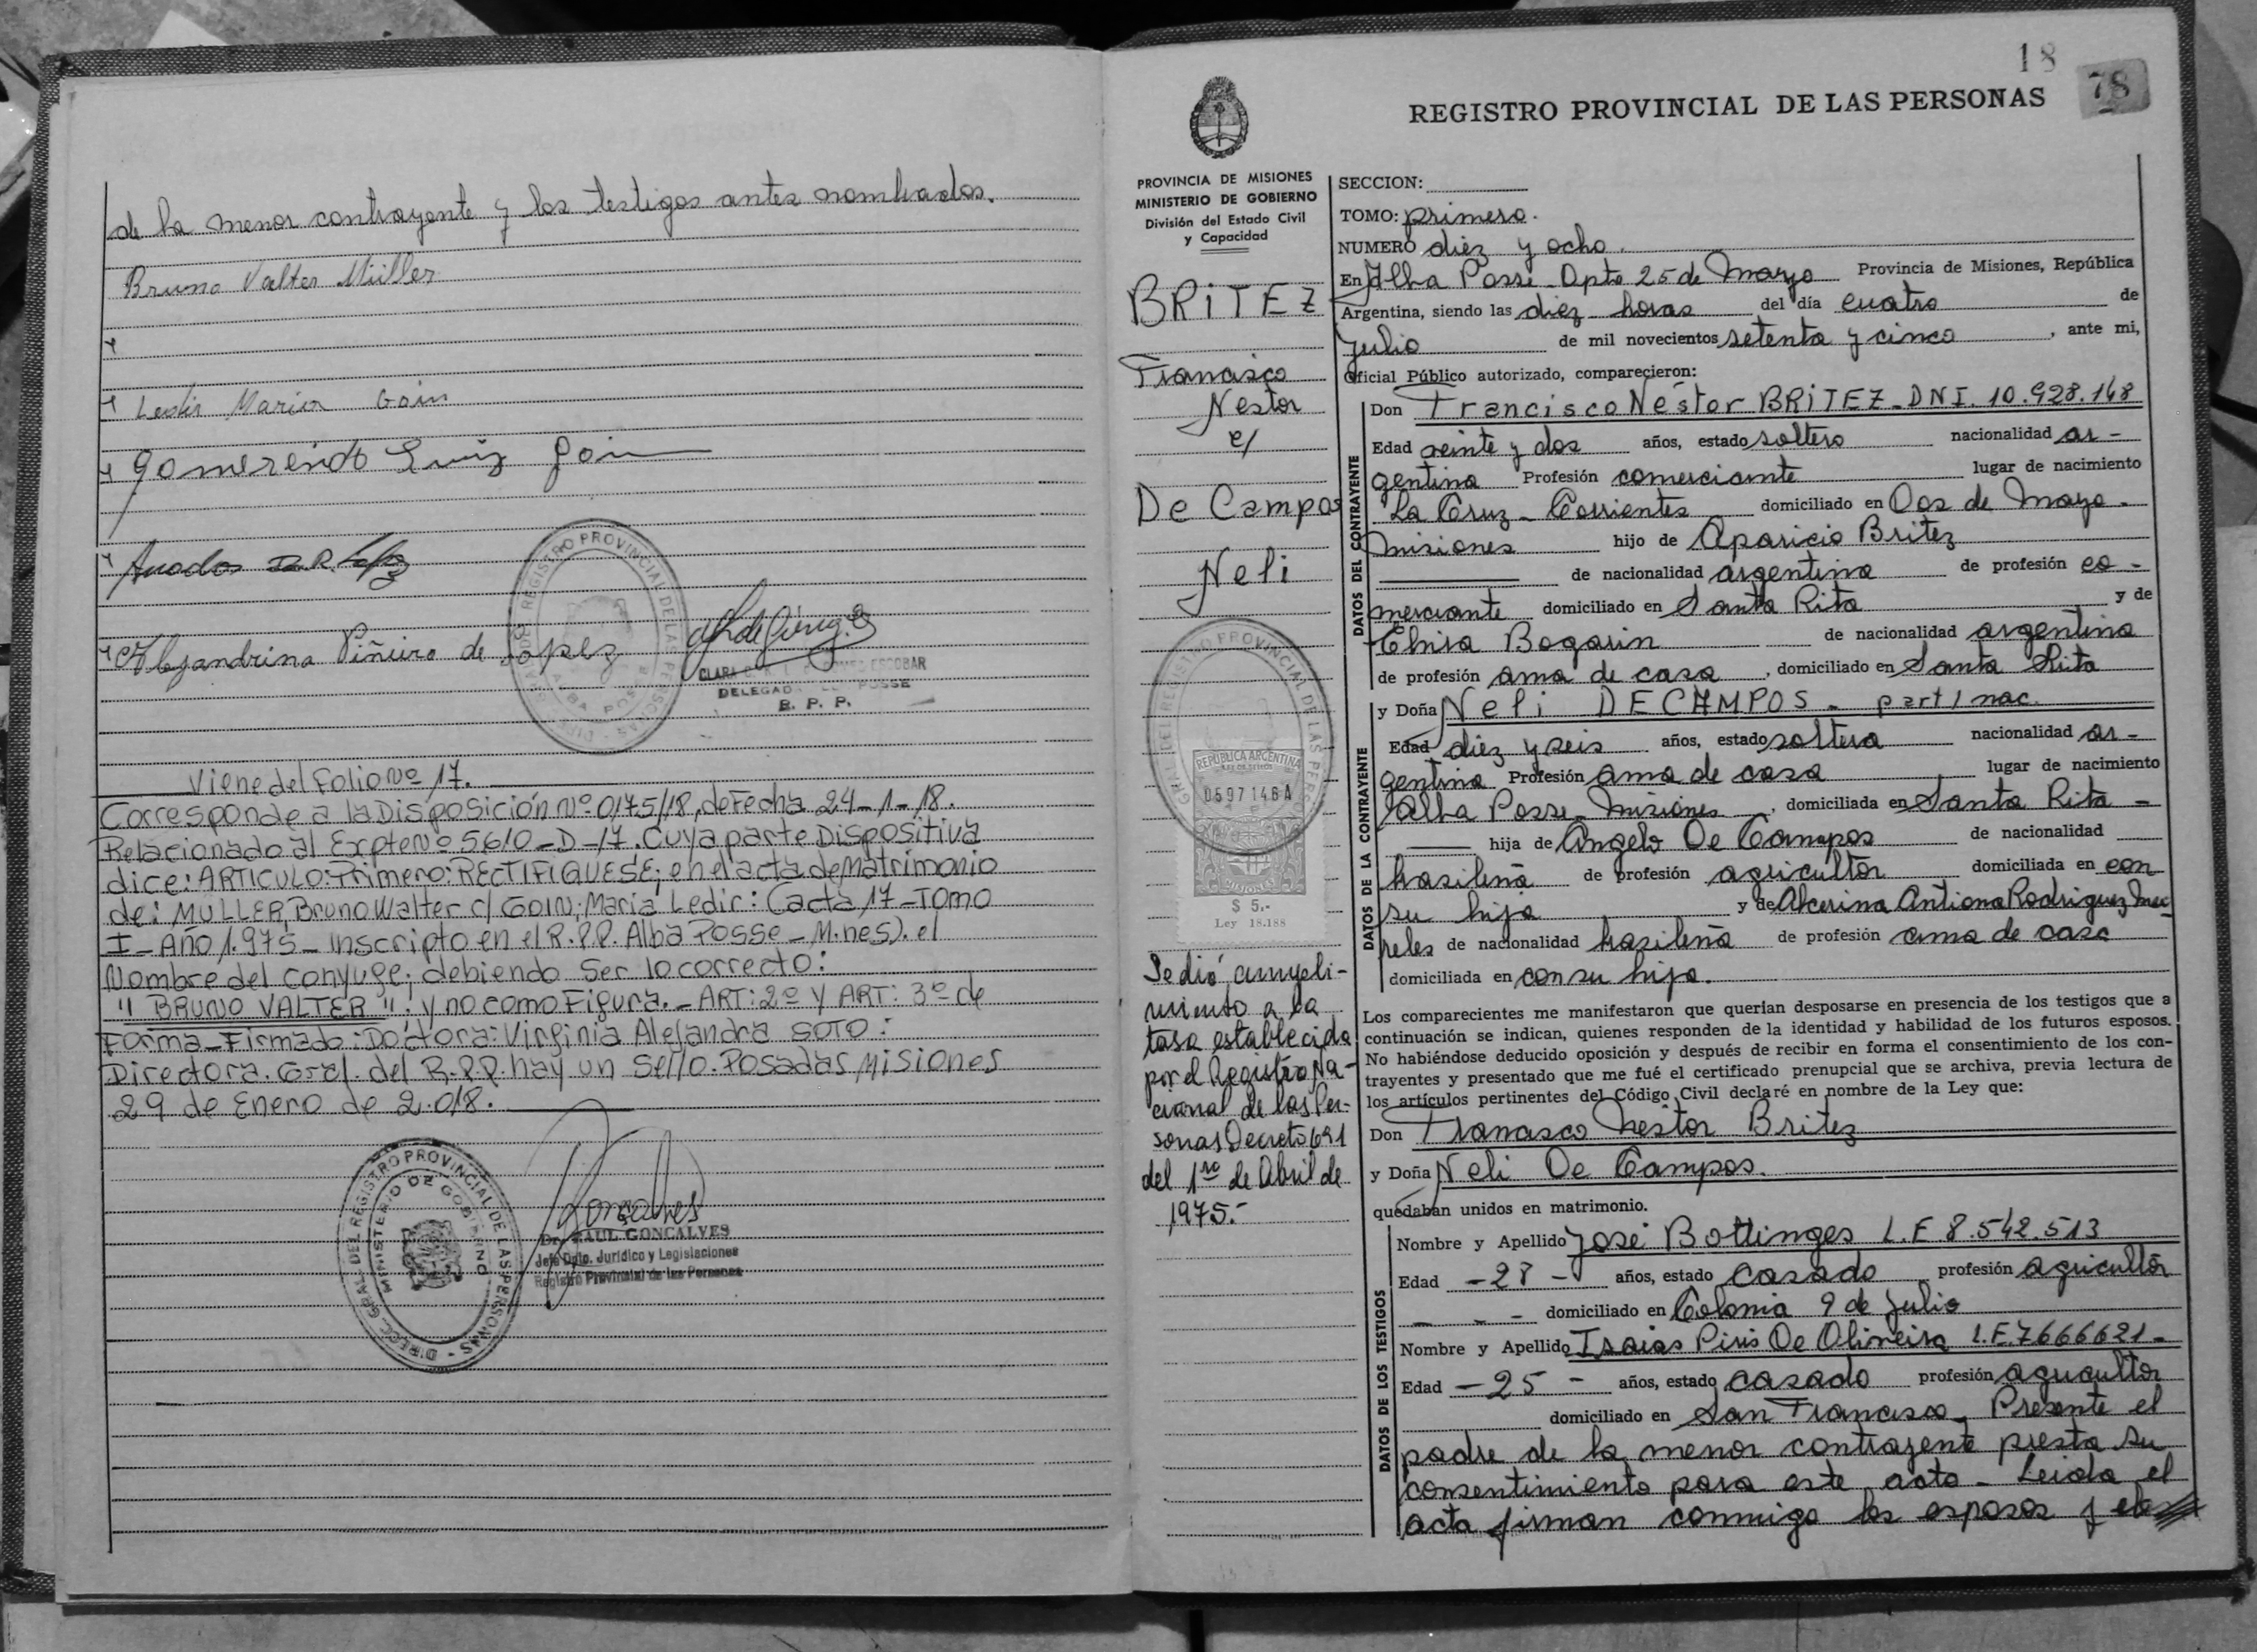 de la menor contrayente y los testigos antes nombrados.
Bruno Valter Müller
"
" Ledir Maria Goin
" Gomerindo Luiz Goin
" Amados
" Alejandrina Piñeiro de Lopez
DIREC. GRAL. DEL REGISTRO PROVINCIAL DE LAS PERSONAS
ALBA POSSE
CLARA ESCOBAR
DELEGADA POSSE
R. P. P.
Viene del Folio Nº 17.
Corresponde a la Disposición Nº 0175/18, de Fecha 24-1-18.
Relacionado al Expte Nº 5610-D-17. Cuya parte Dispositiva
dice: ARTICULO: Primero: RECTIFIQUESE; en el acta de Matrimonio
de: MULLER, Bruno Walter c/ GOIN; Maria Ledir: (acta 17-Tomo
I- Año 1.975- inscripto en el R.P.P. Alba Posse-M.nes). el
Nombre del conyuge; debiendo ser lo correcto:
" BRUNO VALTER "; y no como Figura.- ART: 2º y ART: 3º de
Forma-Firmado: Doctora: Virginia Alejandra SOTO:
Directora. Gral. del R.P.P. hay un Sello. Posadas Misiones
29 de Enero de 2.018.
DIREC. GRAL. DEL REGISTRO PROVINCIAL DE LAS PERSONAS
MINISTERIO DE GOBIERNO
Dr. RAUL GONCALVES
Jefe Dpto. Jurídico y Legislaciones
Registro Provincial de las Personas
18
78
REGISTRO PROVINCIAL DE LAS PERSONAS
PROVINCIA DE MISIONES
MINISTERIO DE GOBIERNO
División del Estado Civil
y Capacidad
BRITEZ
Francisco
Nestor
c/
De Campos
Neli
GRAL. DEL REGISTRO PROVINCIAL DE LAS PERS
REPUBLICA ARGENTINA
0697146A
MISIONES
$ 5.-
Ley 18.188
Se dió cumpli-
miento a la
tasa establecida
por el Registro Na-
cional de las Per-
sonas Decreto 691
del 1ro de Abril de
1975.-
SECCION:
TOMO: primero.
NUMERO diez y ocho.
En Alba Posse - Dpto 25 de Mayo Provincia de Misiones, República
Argentina, siendo las diez horas del día cuatro de
Julio de mil novecientos setenta y cinco, ante mi,
Oficial Público autorizado, comparecieron:
DATOS DEL CONTRAYENTE
Don Francisco Néstor BRITEZ - DNI. 10.928.148
Edad veinte y dos años, estado soltero nacionalidad ar-
gentina Profesión comerciante lugar de nacimiento
La Cruz - Corrientes domiciliado en Dos de Mayo -
Misiones hijo de Aparicio Britez
de nacionalidad argentina de profesión co-
merciante domiciliado en Santa Rita y de
Bogarin de nacionalidad argentina
de profesión ama de casa, domiciliado en Santa Rita
DATOS DE LA CONTRAYENTE
y Doña Neli DE CAMPOS - part/nac.
Edad diez y seis años, estado soltera nacionalidad ar-
gentina Profesión ama de casa lugar de nacimiento
Alba Posse - Misiones, domiciliada en Santa Rita -
hija de Angelo De Campos de nacionalidad
brasileña de profesión agricultor domiciliada en con
su hija y de Alcerina Antiona Rodriguez
de nacionalidad brasileña de profesión ama de casa
domiciliada en con su hija.
Los comparecientes me manifestaron que querían desposarse en presencia de los testigos que a
continuación se indican, quienes responden de la identidad y habilidad de los futuros esposos.
No habiéndose deducido oposición y después de recibir en forma el consentimiento de los con-
trayentes y presentado que me fué el certificado prenupcial que se archiva, previa lectura de
los artículos pertinentes del Código Civil declaré en nombre de la Ley que:
Don Francisco Nestor Britez
y Doña Neli De Campos.
quedaban unidos en matrimonio.
DATOS DE LOS TESTIGOS
Nombre y Apellido José Bottinges L.E 8.542.513
Edad -28- años, estado casado profesión agricultor
domiciliado en Colonia 9 de Julio
Nombre y Apellido Isaias Piris De Oliveira L.E. 7666621-
Edad -25- años, estado casado profesión agricultor
domiciliado en San Francisco - Presente el
padre de la menor contrayente presta su
consentimiento para este acto - Leida el
acta firman conmigo los esposos y